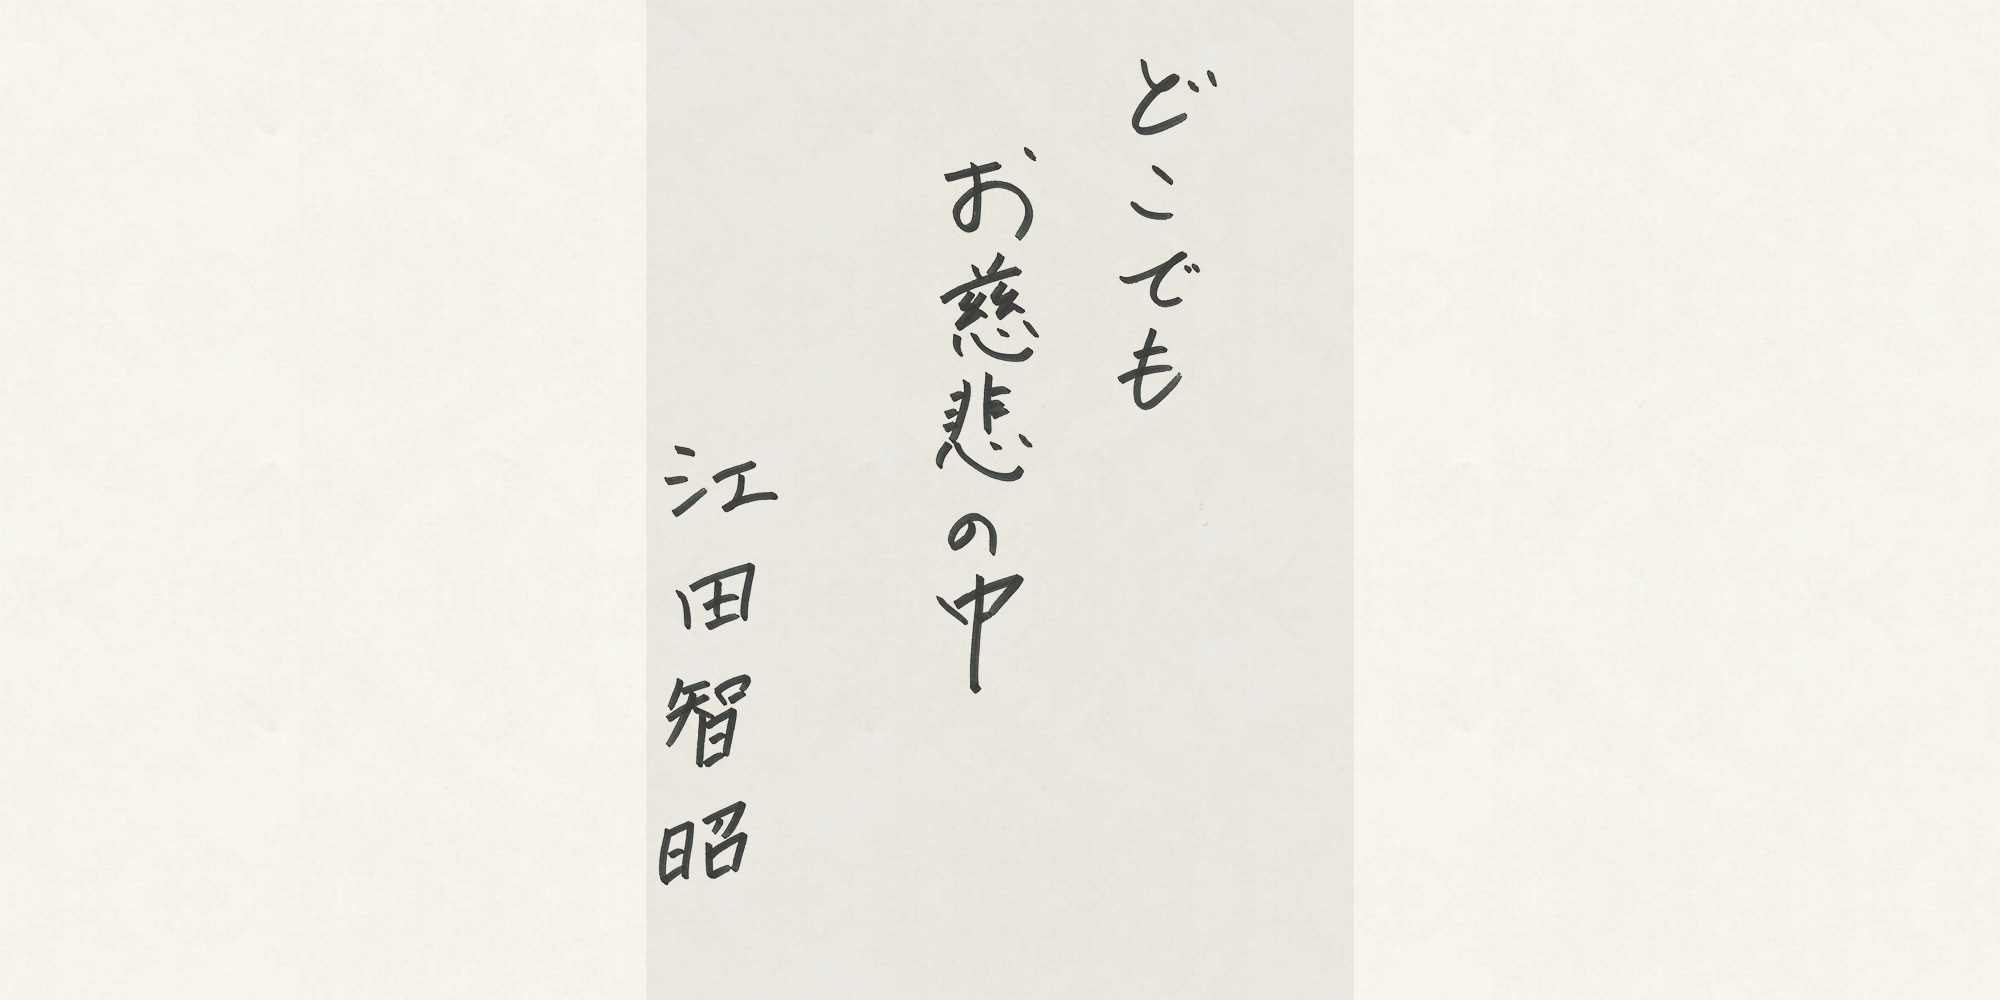 どこでも
お慈悲の中
江田智昭